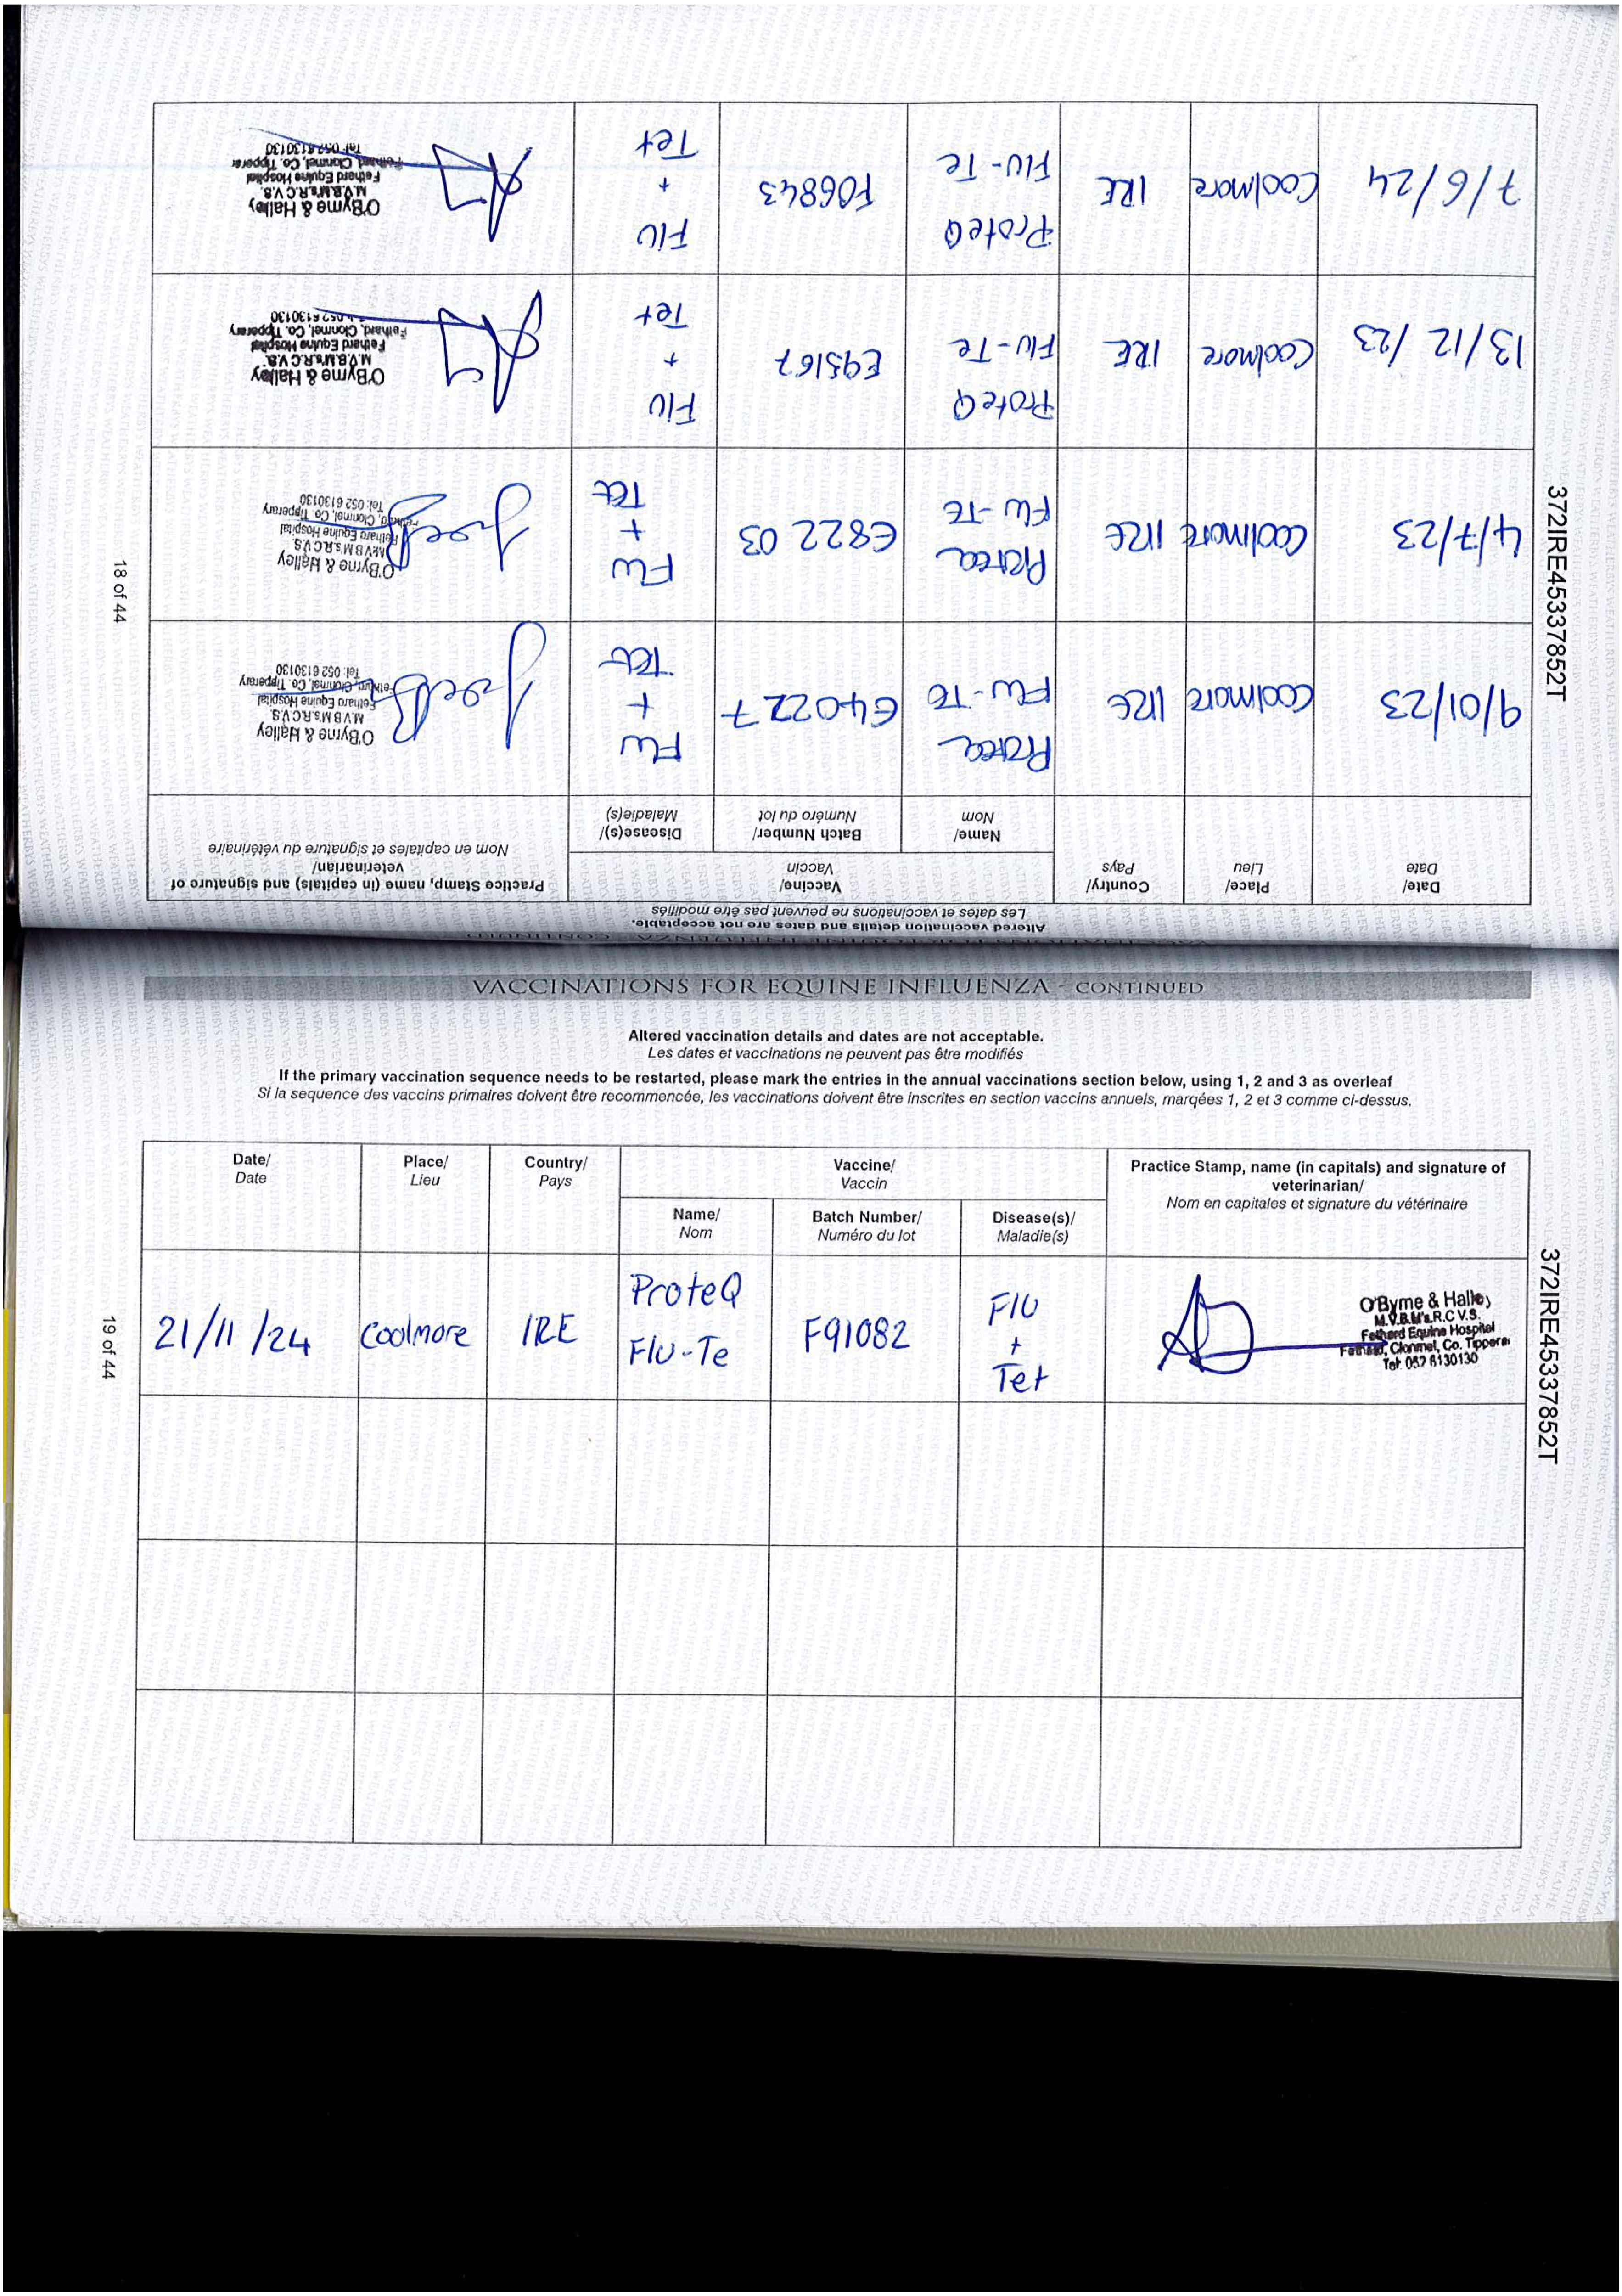 Altered vaccination details and dates are not acceptable.
Les dates et vaccinations ne peuvent pas être modifiés
Date/
Date
Place/
Lieu
Country/
Pays
Vaccine/
Vaccin
Practice Stamp, name (in capitals) and signature of
veterinarian/
Nom en capitales et signature du vétérinaire
Name/
Nom
Batch Number/
Numéro du lot
Disease(s)/
Maladie(s)
9/01/23
Coolmore
IRE
Proteq
Flu-Te
E40227
Flu
+
Tet
O'Byrne & Halley
M.V.B M's.R.C.V.S.
Fethard Equine Hospital
Fethard, Clonmel, Co. Tipperary
Tel: 052 6130130
4/7/23
Coolmore
IRE
Proteq
Flu-Te
E822 03
Flu
+
Tet
O'Byrne & Halley
M.V.B M's.R.C.V.S.
Fethard Equine Hospital
Fethard, Clonmel, Co. Tipperary
Tel: 052 6130130
13/12/23
Coolmore
IRE
ProteQ
Flu-Te
E95167
Flu
+
Tet
O'Byrne & Halley
M.V.B.M's.R.C.V.S.
Fethard Equine Hospital
Fethard, Clonmel, Co. Tipperary
052 6130130
7/6/24
Coolmore
IRE
ProteQ
Flu-Te
F06843
Flu
+
Tet
O'Byrne & Halley
M.V.B.M's.R.C.V.S.
Fethard Equine Hospital
Fethard, Clonmel, Co. Tipperar
Tel: 052 6130130
18 of 44
372IRE45337852T
VACCINATIONS FOR EQUINE INFLUENZA - CONTINUED
Altered vaccination details and dates are not acceptable.
Les dates et vaccinations ne peuvent pas être modifiés
If the primary vaccination sequence needs to be restarted, please mark the entries in the annual vaccinations section below, using 1, 2 and 3 as overleaf
Si la sequence des vaccins primaires doivent être recommencée, les vaccinations doivent être inscrites en section vaccins annuels, marqées 1, 2 et 3 comme ci-dessus.
Date/
Date
Place/
Lieu
Country/
Pays
Vaccine/
Vaccin
Practice Stamp, name (in capitals) and signature of
veterinarian/
Nom en capitales et signature du vétérinaire
Name/
Nom
Batch Number/
Numéro du lot
Disease(s)/
Maladie(s)
21/11/24
Coolmore
IRE
ProteQ
Flu-Te
F91082
Flu
+
Tet
O'Byrne & Halley
M.V.B.M's.R.C V.S.
Fethard Equine Hospital
Fethard, Clonmel, Co. Tipperar
Tel: 052 6130130
19 of 44
372IRE45337852T